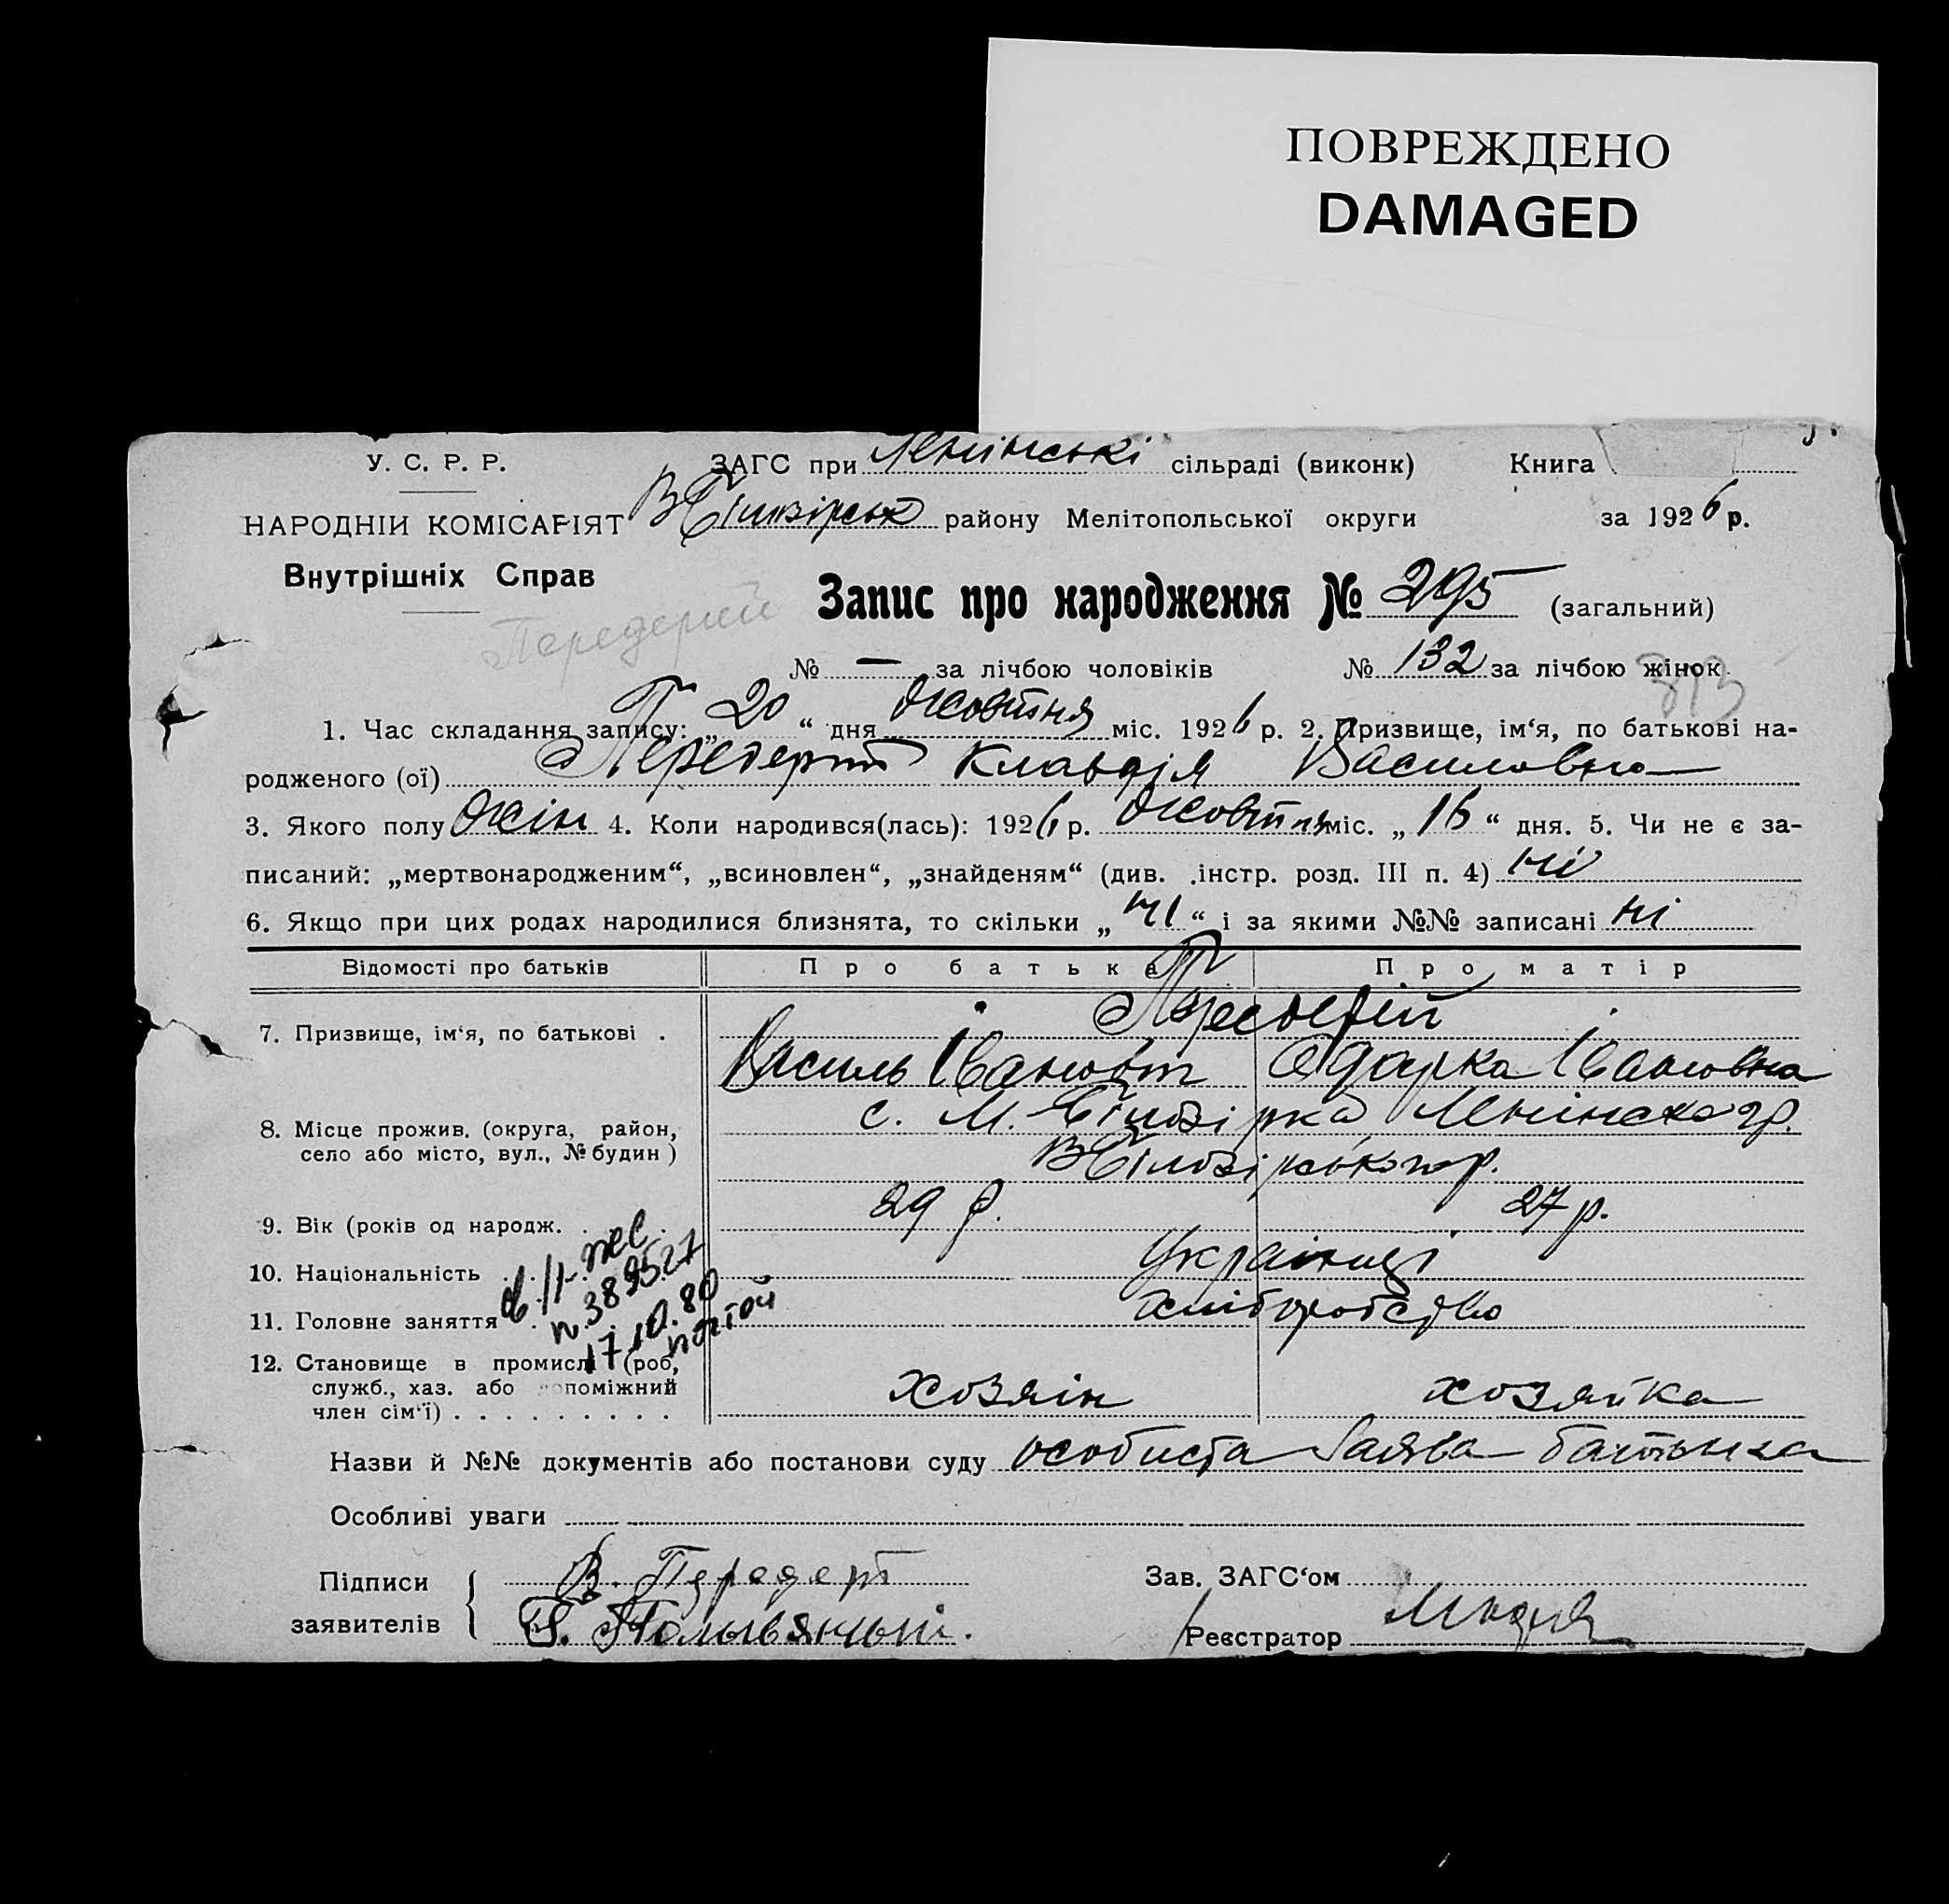 ПОВРЕЖДЕНО
DAMAGED
У. С. Р. Р.
ЗАГС при Ленінські сільраді (виконк) Книга
НАРОДНІЙ КОМІСАРІЯТ
В Білозірськ району Мелітопольської округи за 1926 р.
Внутрішніх Справ
Передерий
Запис про народження № 295 (загальний)
№ — за лічбою чоловіків № 132 за лічбою жінок
1. Час складання запису: „ 20 “ дня жовтня міс. 1926 р. 2. Призвище, ім‘я, по батькові на-
родженого (ої) Передерій Клавдія Василовна
3. Якого полу жін 4. Коли народився(лась): 1926 р. жовтня міс. „ 16 “ дня. 5. Чи не є за-
писаний: „мертвонародженим“, „всиновлен“, „знайденям“ (див. .інстр. розд. III п. 4) ні
6. Якщо при цих родах народилися близнята, то скільки „ ні “ і за якими №№ записані ні
Відомості про батьків Про батька Про матір
7. Призвище, ім‘я, по батькові . Передерій
Василь Іванович Одарка Івановна
8. Місце прожив. (округа, район,
село або місто, вул., № будин)
с. М. Білозірка Ленінско
В Білозірського р.
9. Вік (років од народж. . 29 р. 27 р.
10. Національність Українці
11. Головне заняття хліборобство
п. 389527
17.10.80
почтой
12. Становище в промислі (роб,
служб., хаз. або допоміжний
член сім‘ї) . . . . . . . . . хозяін хозяйка
Назви й №№ документів або постанови суду особиста Заява батька
Особливі уваги
Підписи В. Передерій Зав. ЗАГС‘ом
заявителів Реєстратор